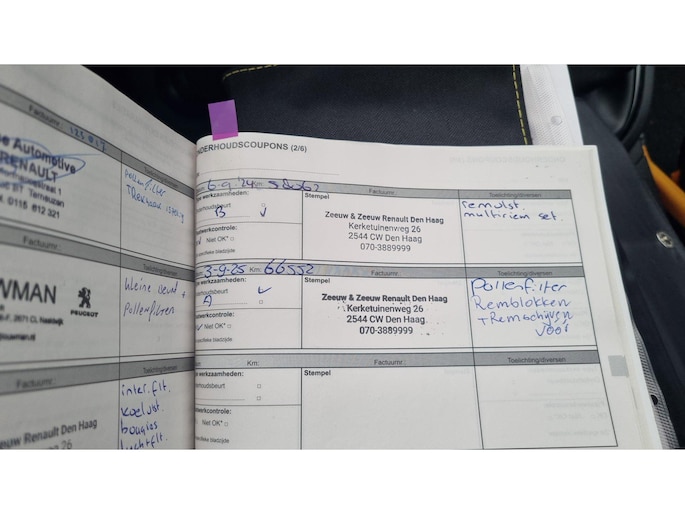 Factuurnr.: 125017
se Automotive
RENAULT
BT Terneuzen
Tel. 0115 612 321
Toelichting/diversen
Pollenfilter
Factuurnr.:
WMAN
PEUGEOT
Toelichting/diversen
kleine beurt +
Pollenfilter
Factuurnr.:
Zeeuw Renault Den Haag
Toelichting/diversen
inter.flt.
koelvlst.
bougies
luchtflt.
NDERHOUDSCOUPONS (2/6)
6-9-24 Km:
Factuurnr.:
Toelichting/diversen
werkzaamheden:
B ✓
Niet OK*
Stempel
Zeeuw & Zeeuw Renault Den Haag
Kerketuinenweg 26
2544 CW Den Haag
070-3889999
remvlst.
multiriem set.
3-9-25 Km: 66552
Factuurnr.:
Toelichting/diversen
werkzaamheden:
A ✓
Niet OK*
Stempel
Zeeuw & Zeeuw Renault Den Haag
Kerketuinenweg 26
2544 CW Den Haag
070-3889999
Pollenfilter
Remblokken
+ Remschijven
voor
Km:
Factuurnr.:
Toelichting/diversen
werkzaamheden:
Niet OK*
Stempel